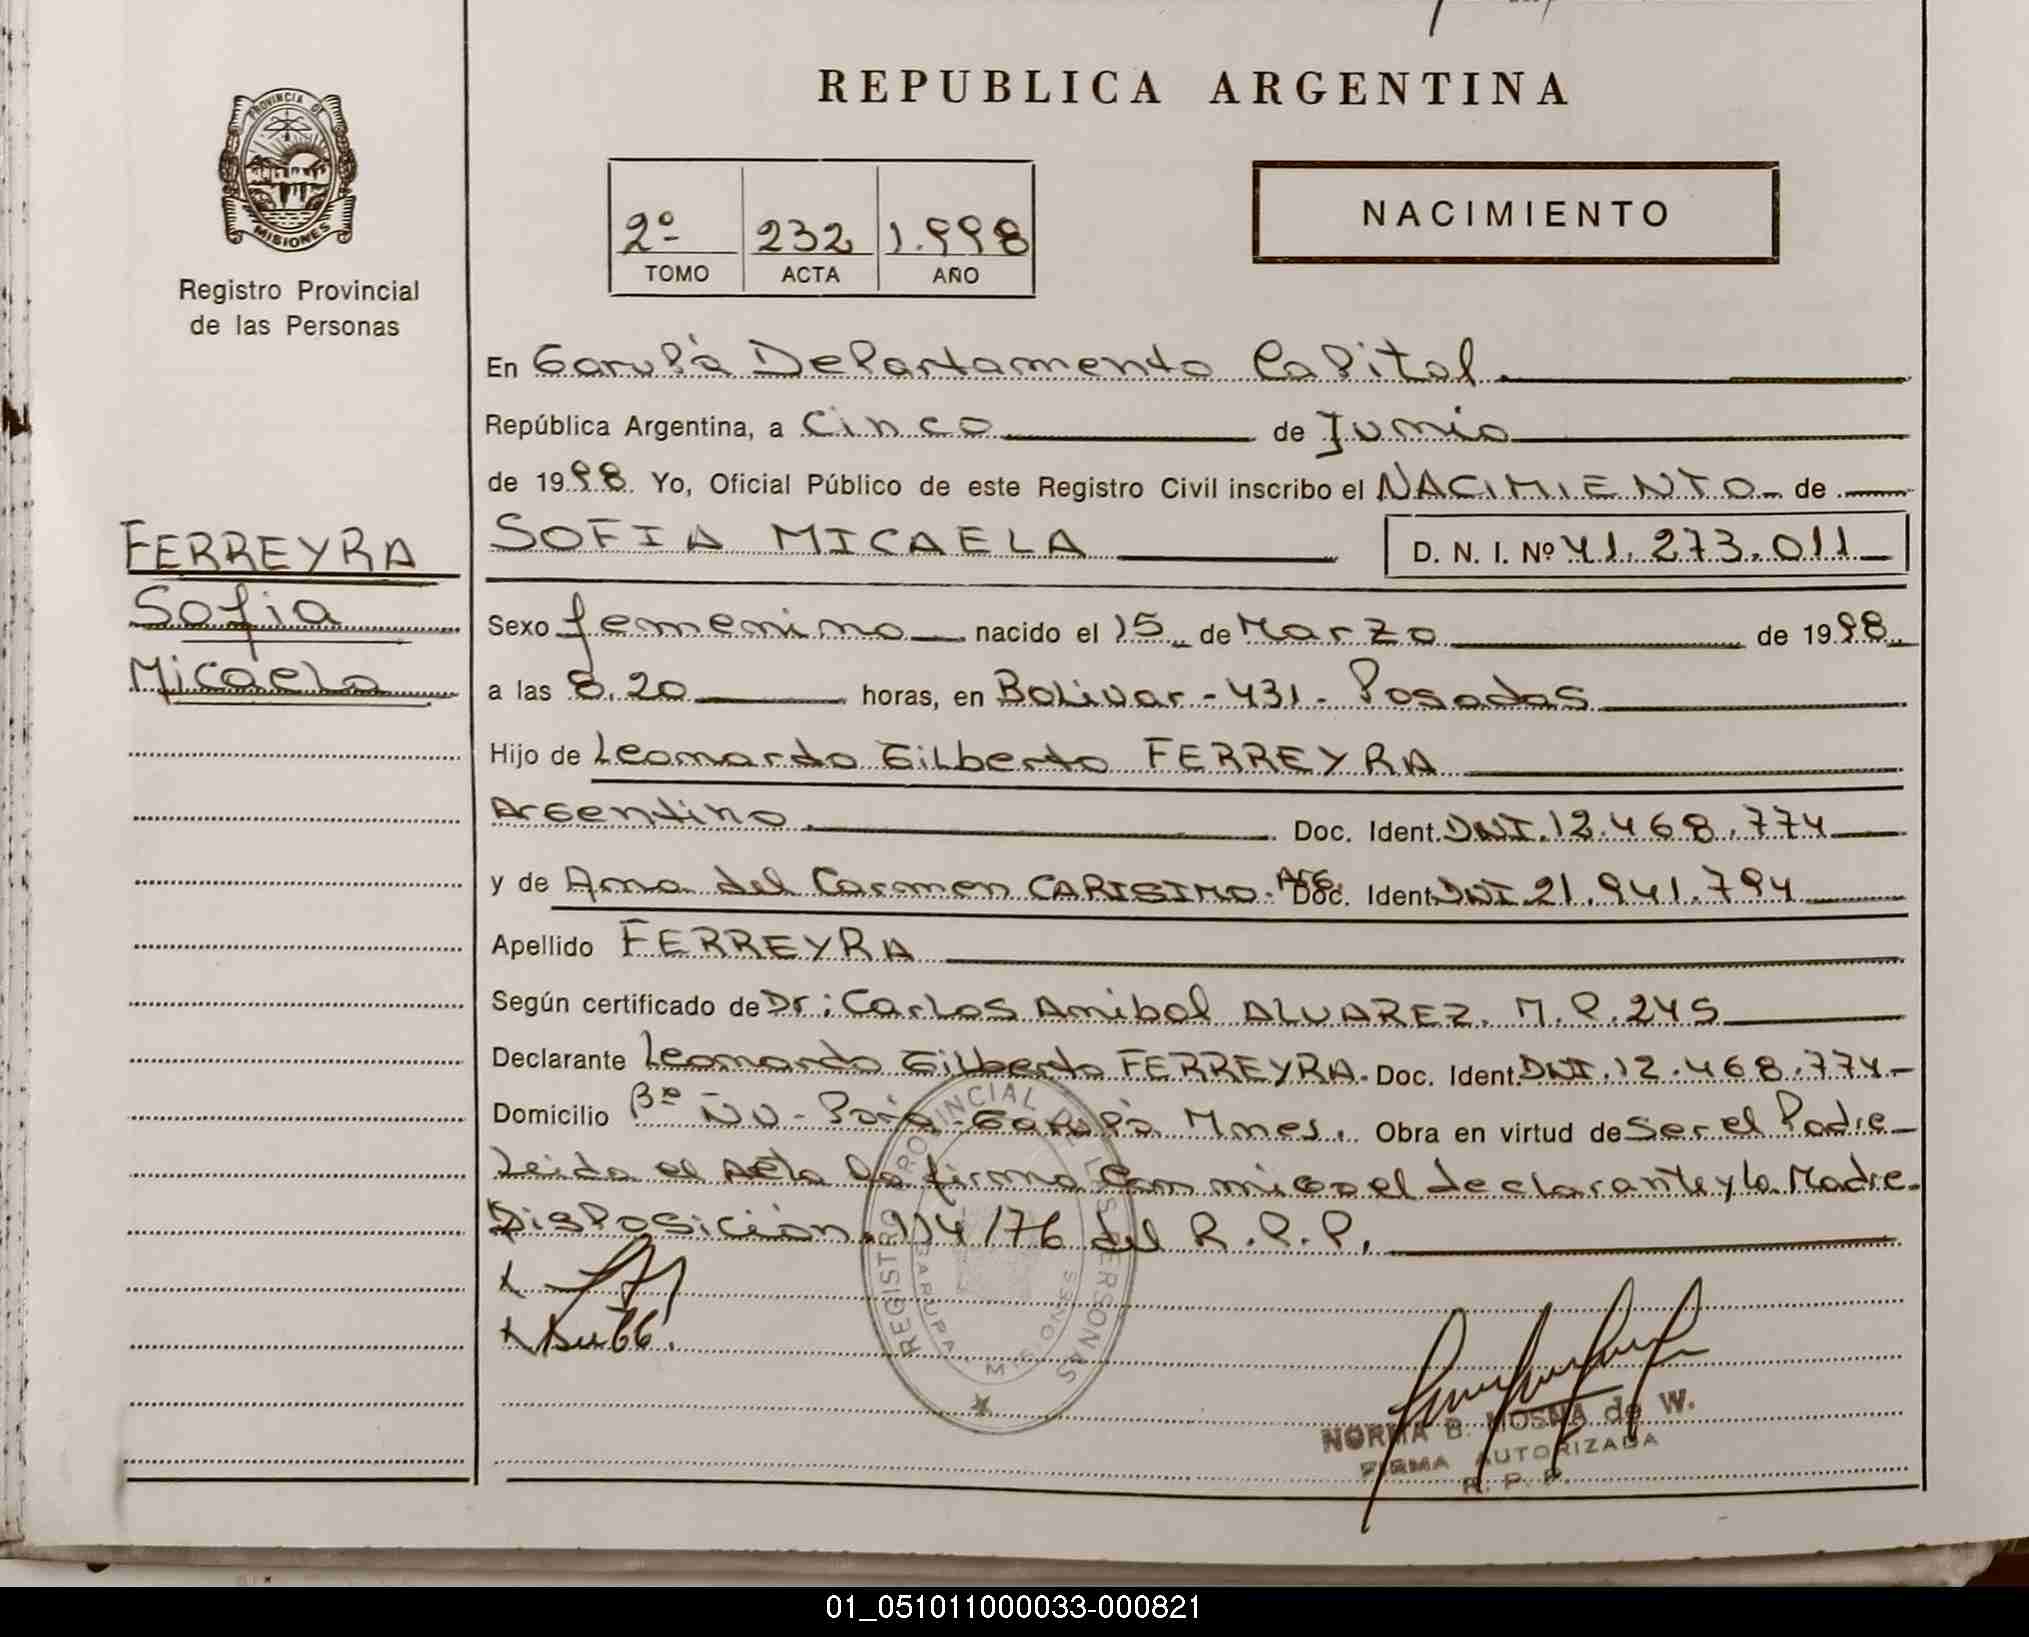 REPUBLICA ARGENTINA
PROVINCIA DE
MISIONES
Registro Provincial
de las Personas
2º 232 1.998
TOMO ACTA AÑO
NACIMIENTO
En Garupá Departamento Capital.
República Argentina, a Cinco de Junio
de 1998. Yo, Oficial Público de este Registro Civil inscribo el NACIMIENTO de
FERREYRA
Sofia
Micaela
SOFIA MICAELA D. N. I. Nº 41.273.011
Sexo femenino nacido el 15 de Marzo de 1998
a las 8.20 horas, en Bolivar - 431 - Posadas
Hijo de Leonardo Gilberto FERREYRA
Argentino. Doc. Ident. DNI. 12.468.774
y de Ana del Carmen CARISIMO. Arg. Doc. Ident. DNI 21.941.794
Apellido FERREYRA
Según certificado de Dr: Carlos Anibal ALVAREZ. M.P. 245
Declarante Leonardo Gilberto FERREYRA. Doc. Ident. DNI. 12.468.774-
Domicilio Bº ÑU - Porá - Garupá Mnes. Obra en virtud de Ser el Padre
Leida el Acta la firma Conmigo el declarante y la Madre.
Disposición. 114/76 del R.P.P.
REGISTRO PROVINCIAL DE LAS PERSONAS
GARUPA MISIONES
NORMA B. MOSNA de W.
FIRMA AUTORIZADA
R. P. P.
01_051011000033-000821